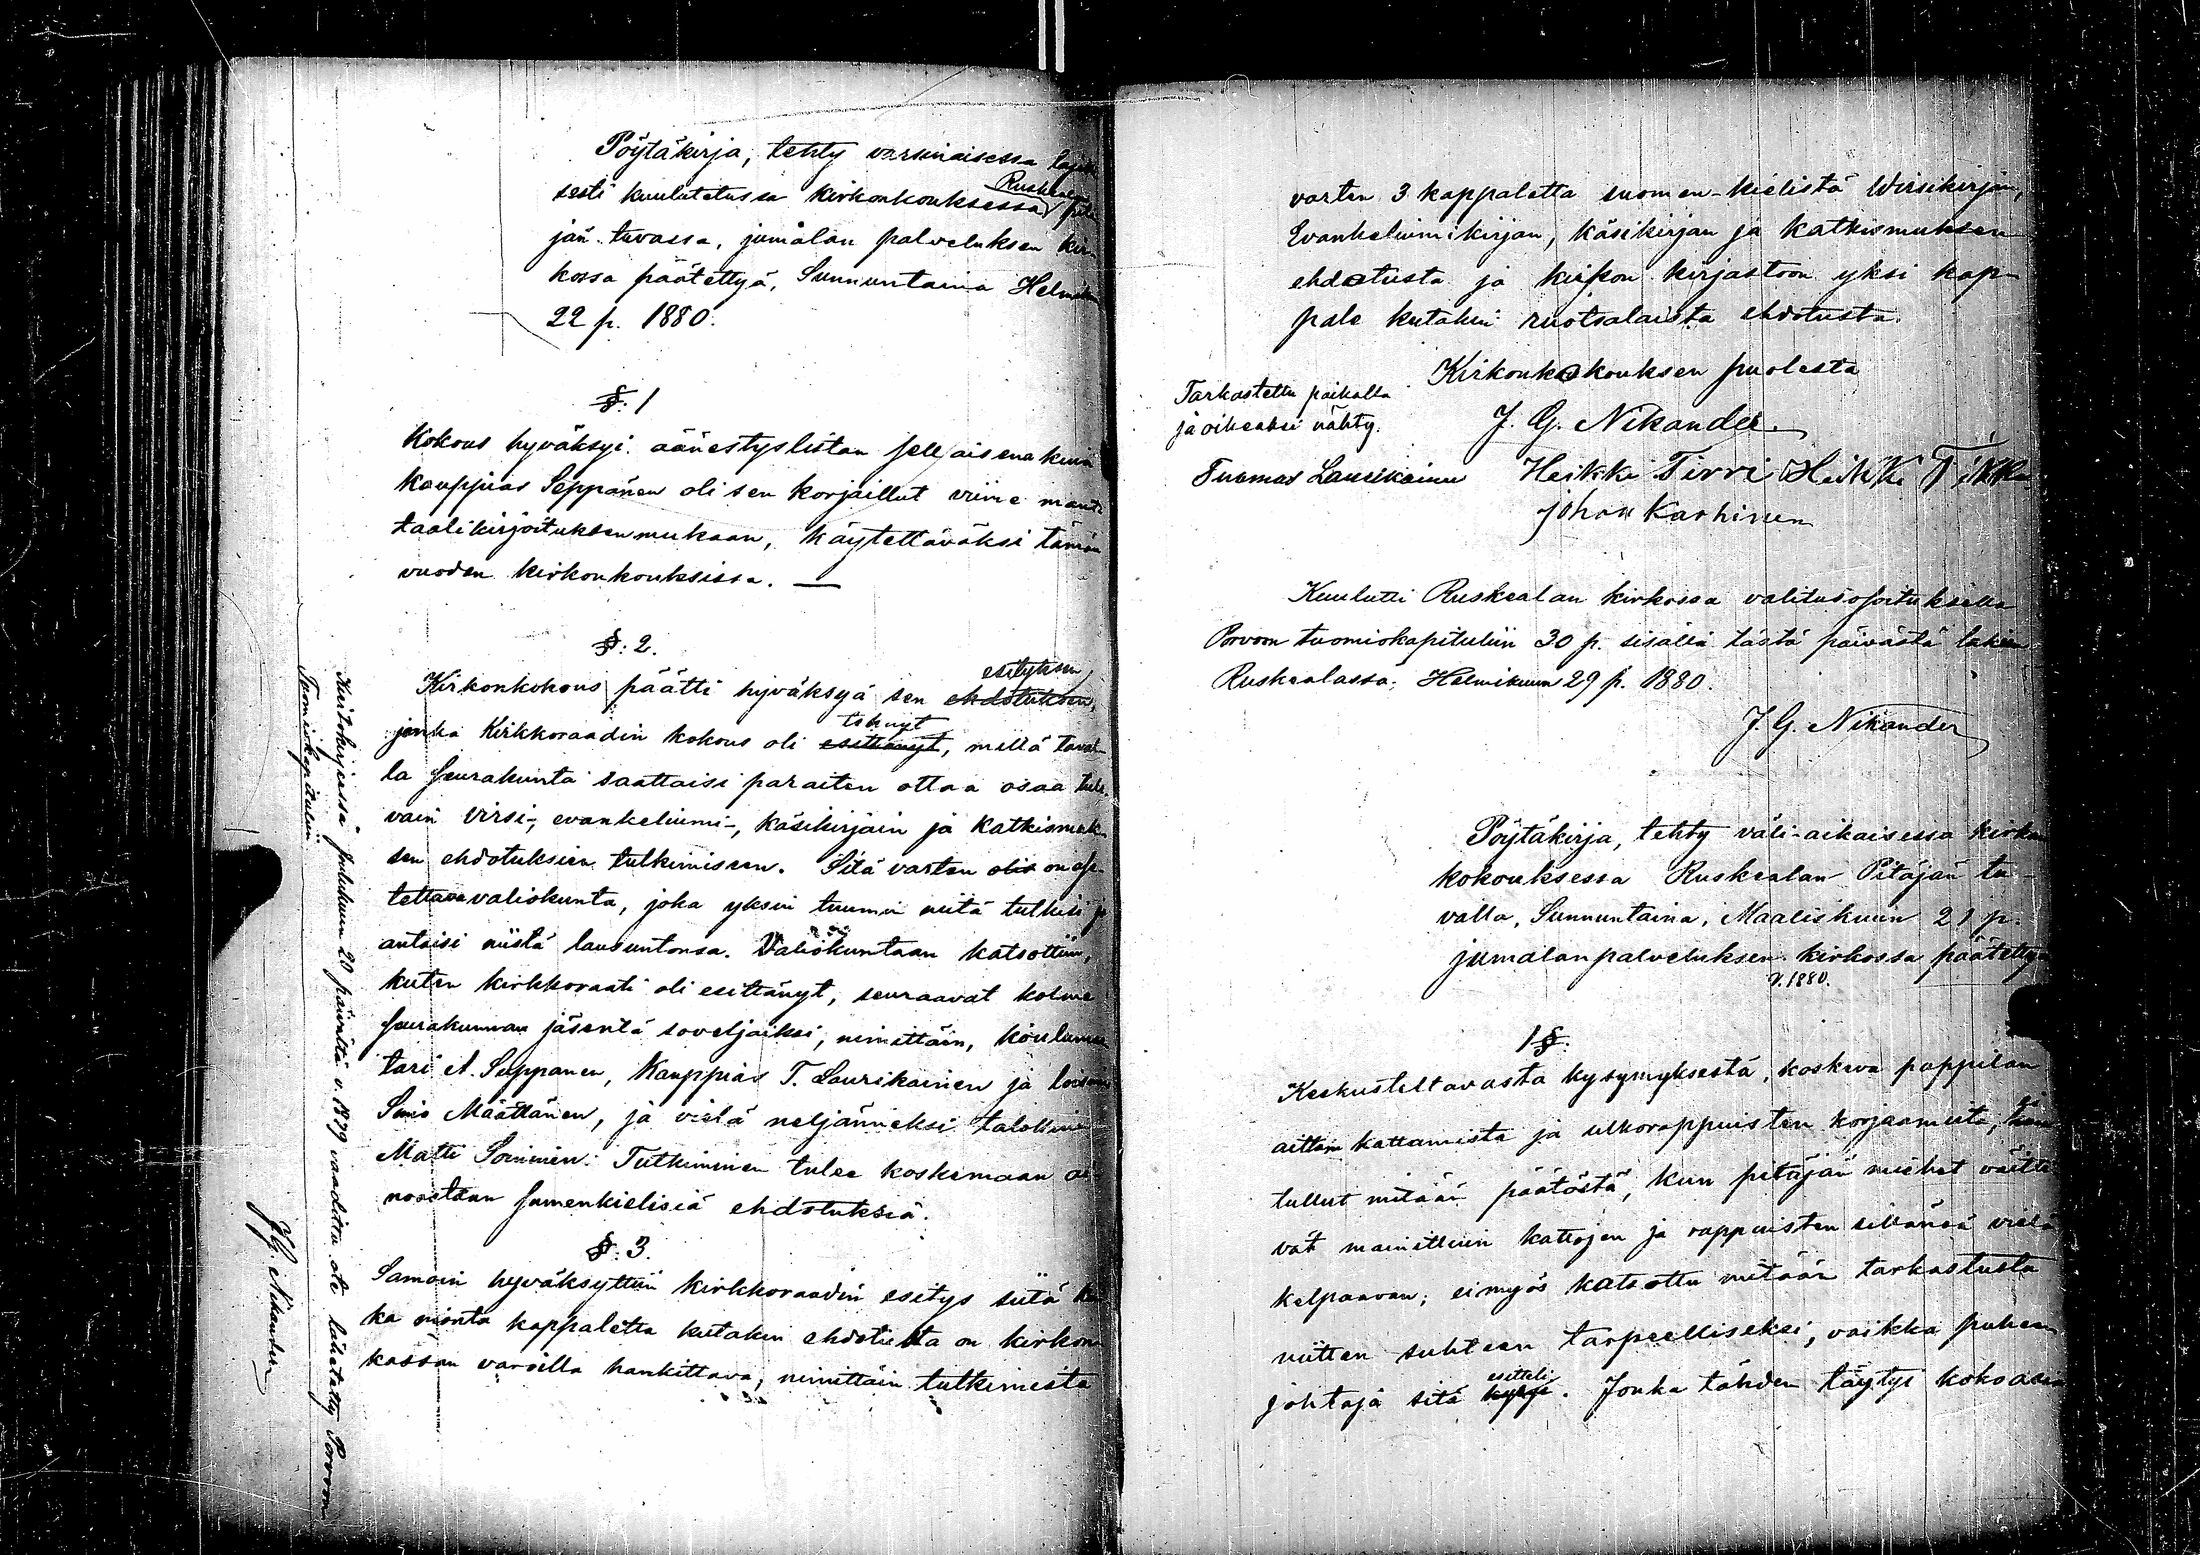 Pöytäkirja, tehty varsinaisessa
sesti kuulutetussa kirkonkouksessa Ruskealan
jän tuvassa, jumalan palveluksen kir-
kossa päätettyä, Sunnuntaina Helmikuun
22 p. 1880.
§: 1
Kokous hyväksyi äänestyslistan sellaisena kuin
kauppias Seppänen oli sen korjaillut viime mant-
taalikirjoituksen mukaan, käytettäväksi tämän
vuoden kirkonkouksissa. —
§: 2.
Kirkonkokous päätti hyväksyä sen ehdotuksen, esityksen
jonka Kirkkoraadin kokous oli esittänyt, tehnyt millä taval-
la seurakunta saattaisi paraiten ottaa osaa tule-
vain virsi-, evankeliumi-, käsikirjain ja katkismuk-
sen ehdotuksien tutkimiseen. Sitä varten olis on ase-
tettava valiokunta, joka yksin tuumin niitä tutkisi ja
antaisi niistä lausuntonsa. Valiokuntaan katsottiin,
kuten kirkkoraati oli esittänyt, seuraavat kolme
seurakunnan jäsentä soveljaiksi, nimittäin, koulumes-
tari A. Seppänen, Kauppias T. Laurikainen ja
Simo Määttänen, ja vielä neljänneksi talollinen
Matti Soininen. Tutkiminen tulee koskemaan ai-
noastaan suomenkielisiä ehdotuksia.
§: 3.
Samoin hyväksyttiin kirkkoraadin esitys siitä kuin-
ka monta kappaletta kutakin ehdotusta on kirkon
kassan varoilla hankittava, nimittäin tutkimista
Kuitokirjassa Joulukuun 20 päivältä v. 1879 vaadittu ole lähetetty Porvoon
Tuomiokapituliin
J.G. Nikander
varten 3 kappaletta suomen-kielistä Wirsikirjan,
Evankeliumikirjan, käsikirjan ja katkismuksen
ehdotusta ja kirkon kirjastoon yksi kap-
pale kutakin ruotsalaista ehdotusta.
Kirkonkokouksen puolesta
J. G. Nikander.
Tarkastettu paikalla
ja oikeaksi nähty.
Tuomas Laurikainen Heikki Tirri Heikki Tikka
Johan Karhinen
Kuulutti Ruskealan kirkossa valitusosoituksella
Porvoon tuomiokapituliin 30 p. sisällä tästä päivästä lukien
Ruskealassa, Helmikuun 29 p. 1880.
J. G. Nikander
Pöytäkirja, tehty väli-aikaisessa kirkon-
kokouksessa Ruskealan Pitäjän tu-
valla, Sunnuntaina, Maaliskuun 21 p.
jumalanpalveluksen kirkossa päätettyä
v. 1880.
1 §.
Keskusteltavasta kysymyksestä, koskeva pappilan
aittain kattamista ja ulkorappuisten korjaamista, ei
tullut mitään päätöstä, kun pitäjän miehet väitti-
vät mainittuin kattojen ja rappuisten sillänsä vielä
kelpaavan; ei myös katsottu mitään tarkastusta
niitten suhteen tarpeelliseksi, vaikka puheen-
johtaja sitä kysyi esitteli. Jonka tähden täytyi koko asia